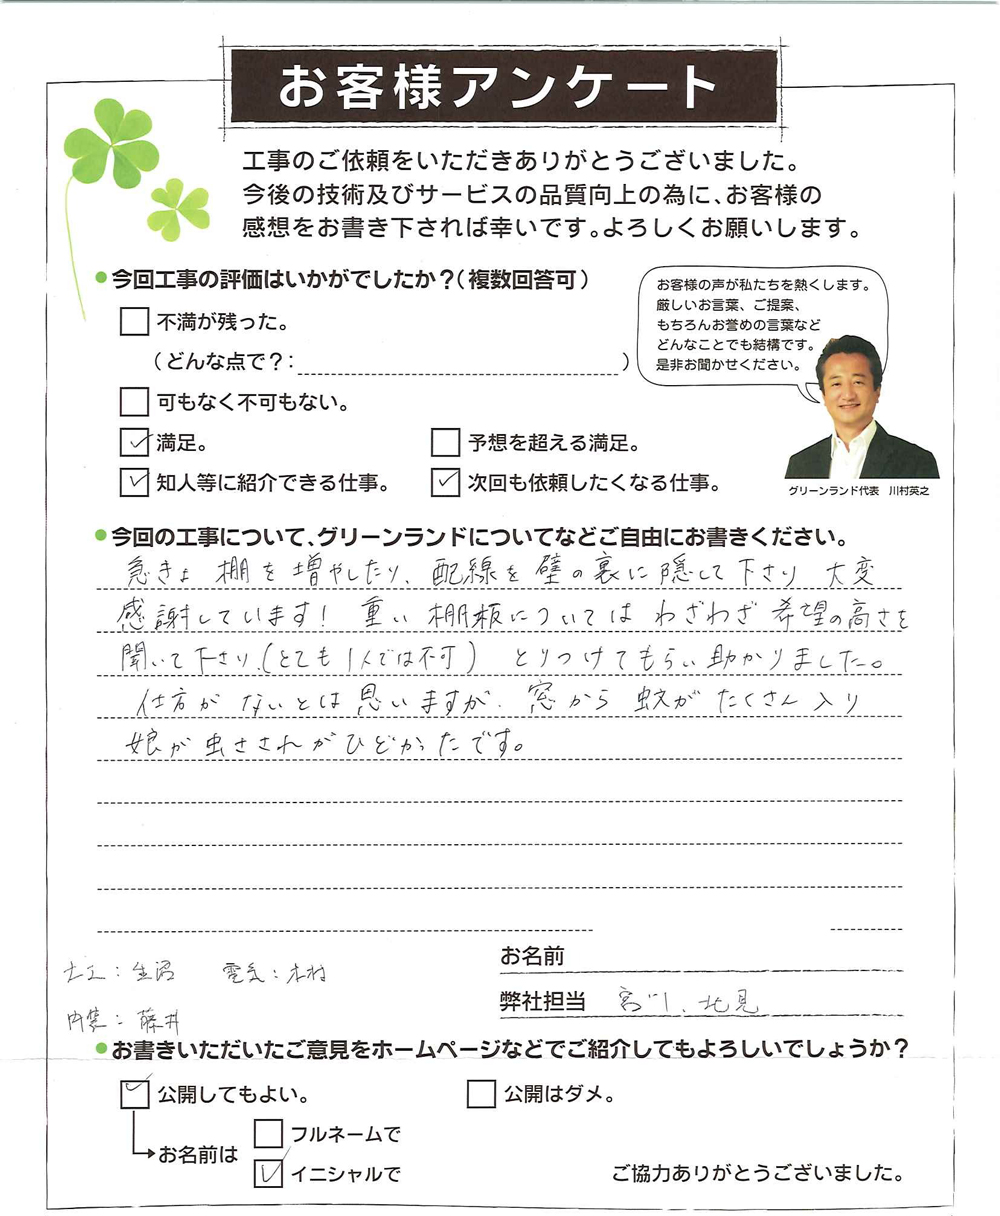 お客様アンケート
工事のご依頼をいただきありがとうございました。
今後の技術及びサービスの品質向上の為に、お客様の
感想をお書き下されば幸いです。よろしくお願いします。
●今回工事の評価はいかがでしたか？（複数回答可）
お客様の声が私たちを熱くします。
厳しいお言葉、ご提案、
もちろんお誉めの言葉など
どんなことでも結構です。
是非お聞かせください。
不満が残った。
（どんな点で？：　）
可もなく不可もない。
満足。
予想を超える満足。
知人等に紹介できる仕事。
次回も依頼したくなる仕事。
グリーンランド代表　川村英之
●今回の工事について、グリーンランドについてなどご自由にお書きください。
急きょ 棚を増やしたり、配線を壁の裏に隠して下さり 大変
感謝しています！ 重い棚板については わざわざ 希望の高さを
聞いて下さり、（とても1人では不可） とりつけてもらい助かりました。
仕方がないとは思いますが、窓から 蚊がたくさん入り
娘が虫さされがひどかったです。
お名前
大工：生沼　電気：木村
弊社担当　宮川、北見
内装：藤井
●お書きいただいたご意見をホームページなどでご紹介してもよろしいでしょうか？
公開してもよい。
公開はダメ。
お名前は
フルネームで
イニシャルで
ご協力ありがとうございました。